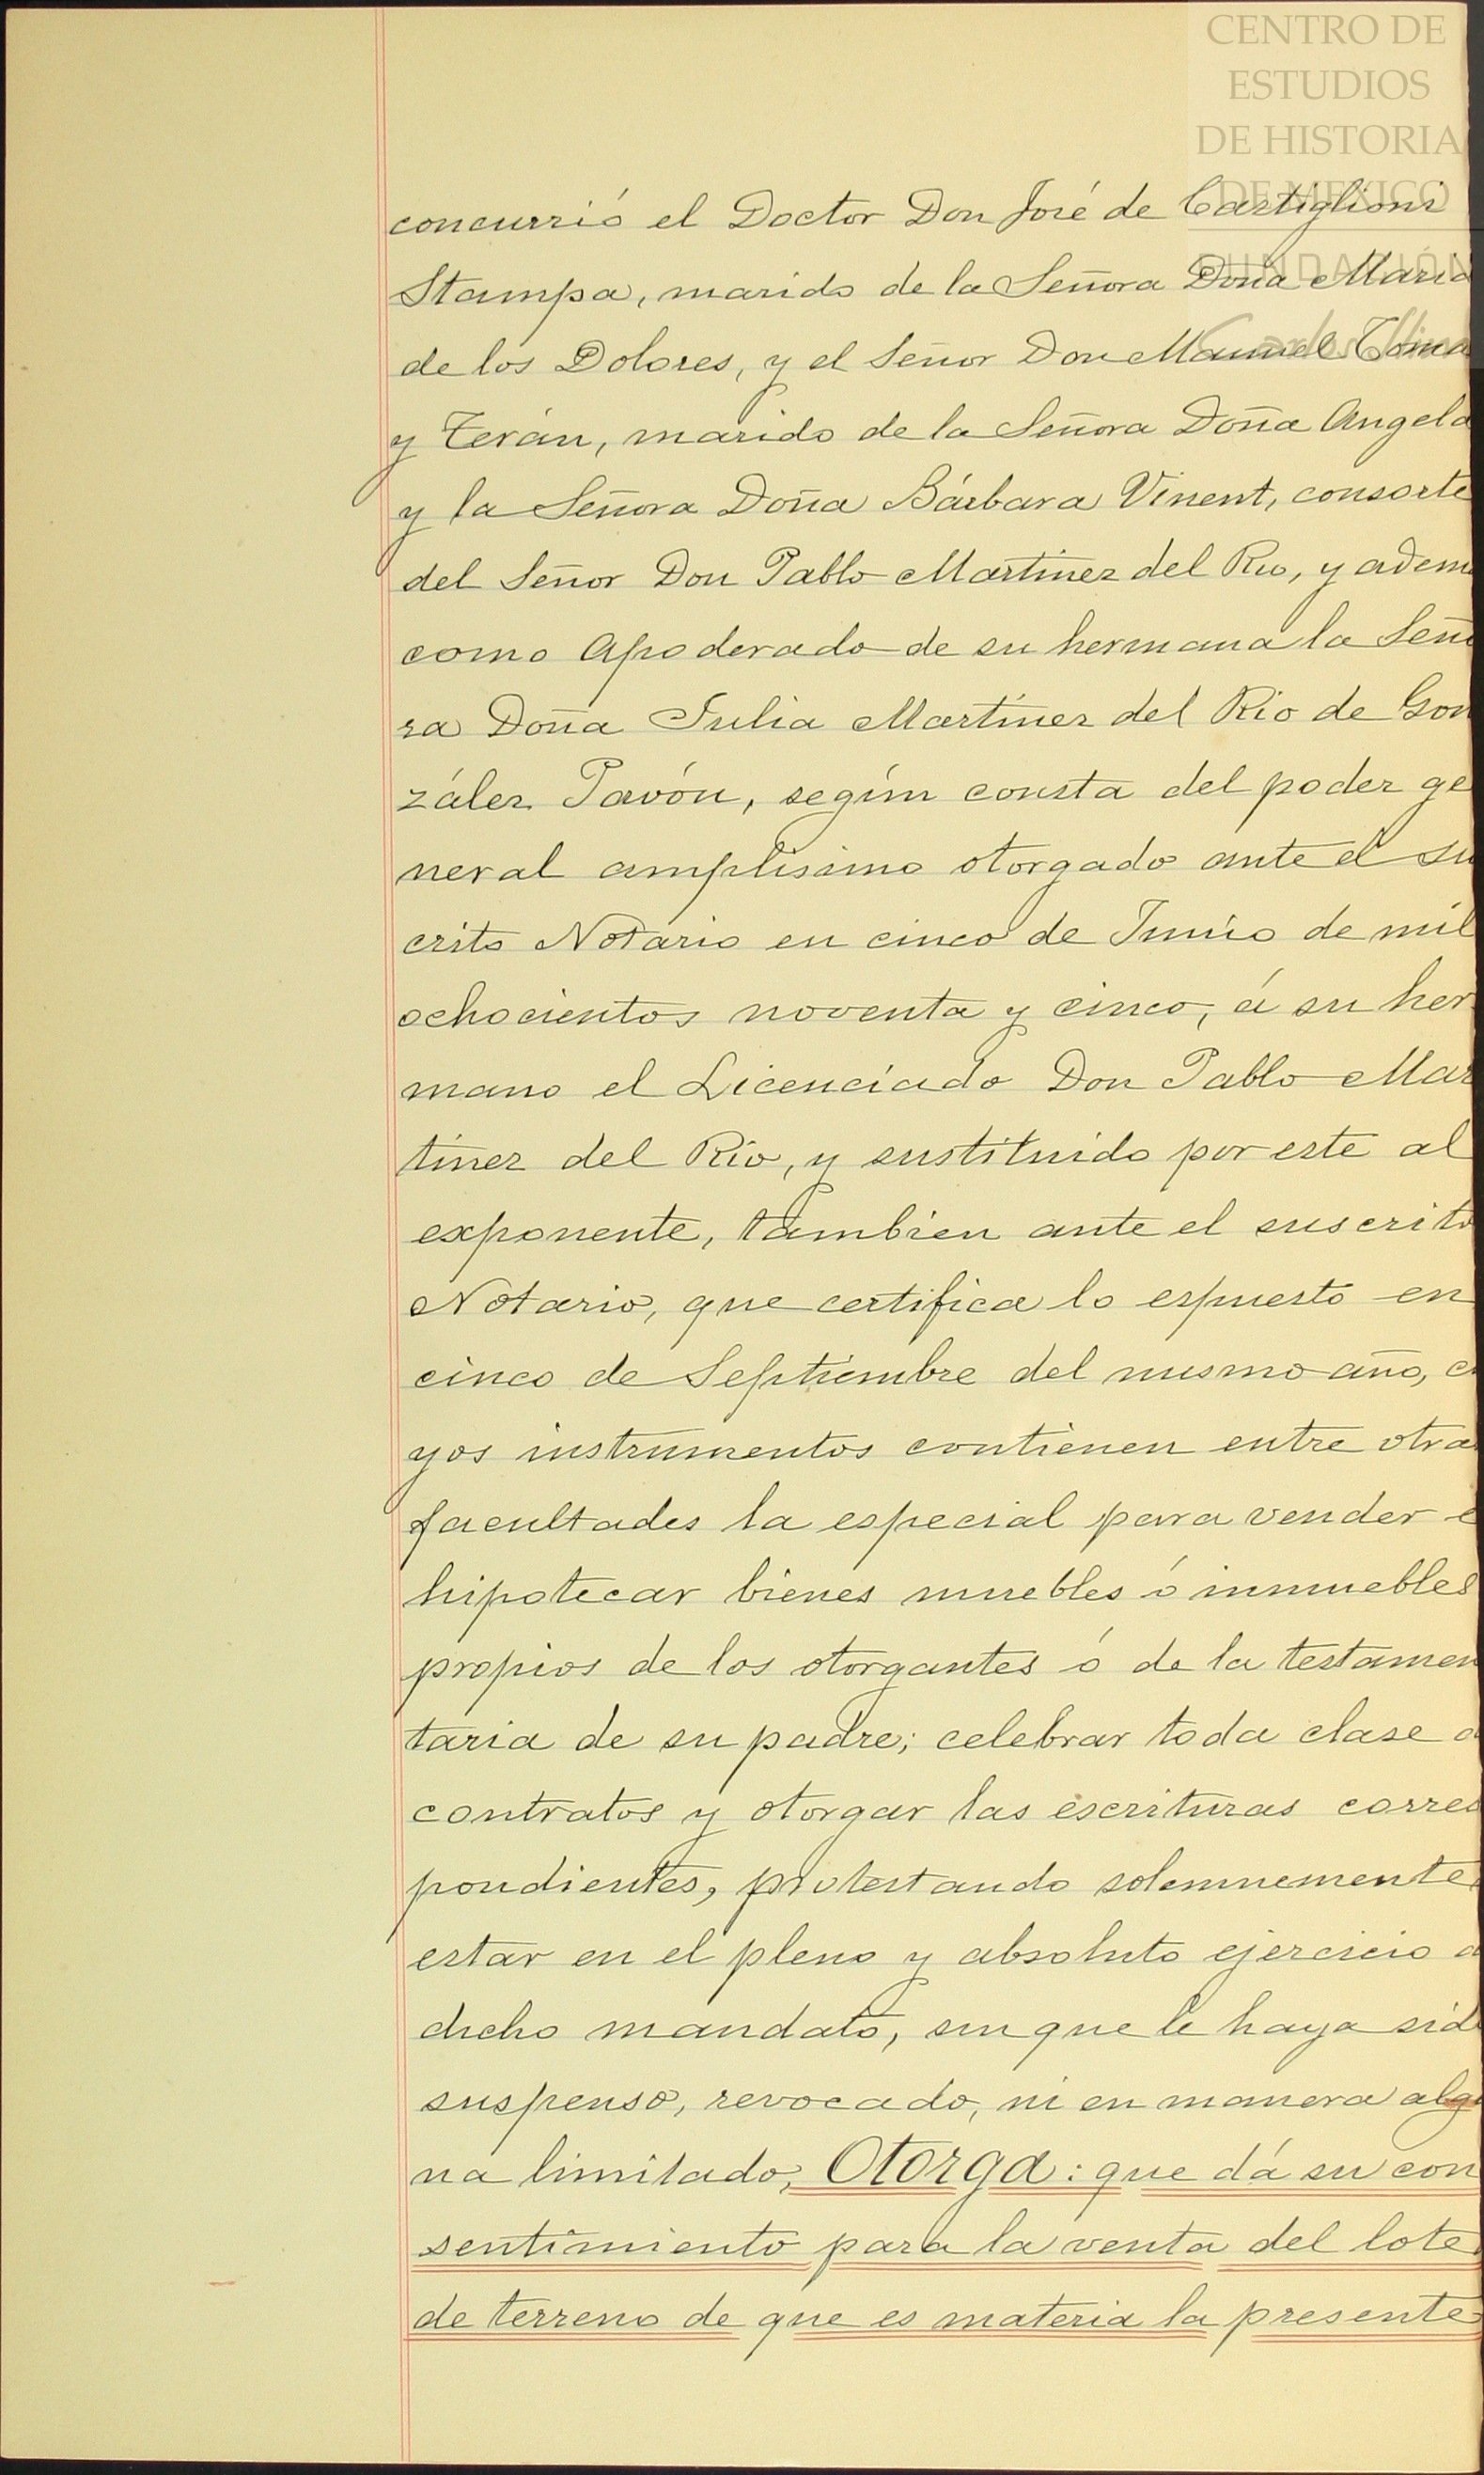 CENTRO DE
ESTUDIOS
DE HISTORIA
DE MÉXICO
FUNDACIÓN
concurrió el Doctor Don José de Castiglioni
Stampa, marido de la Señora Doña Maria
de los Dolores, y el Señor Don Manuel
y Terán, marido de la Señora Doña Angela
y la Señora Doña Bárbara Vinent, consorte
del Señor Don Pablo Martinez del Rio, y adem
como Apoderado de su hermana la Señ
ra Doña Julia Martínez del Rio de Gon
zález Pavón, según consta del poder ge
neral amplísimo otorgado ante el su
crito Notario en cinco de Junio de mil
ochocientos noventa y cinco, á su her
mano el Licenciado Don Pablo Mar
tínez del Río, y sustituido por este al
exponente, tambien ante el suscrito
Notario, que certifica lo espuesto en
cinco de Septiembre del mismo año, c
yos instrumentos contienen entre otra
facultades la especial para vender é
hipotecar bienes muebles ó inmuebles
propios de los otorgantes ó de la testamen
taria de su padre; celebrar toda clase d
contratos y otorgar las escrituras corres
pondientes, protestando solemnemente
estar en el pleno y absoluto ejercicio d
dicho mandato, sin que le haya sid
suspenso, revocado, ni en manera algu
na limitado, Otorga: que dá su con
sentimiento para la venta del lote
de terreno de que es materia la presente